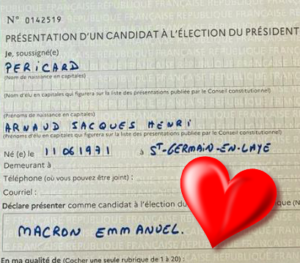 N° 0142519
PRÉSENTATION D'UN CANDIDAT À L'ÉLECTION DU PRÉSIDENT
Je, soussigné(e)
PERICARD
(Nom de naissance en capitales)
(Nom d'élu en capitales qui figurera sur la liste des présentations publiée par le Conseil constitutionnel)
(Prénoms de naissance en capitales)
ARNAUD JACQUES HENRI
(Prénoms d'élu en capitales qui figureront sur la liste des présentations publiée par le Conseil constitutionnel)
Né (e) le 11061971 à ST-GERMAIN-EN-LAYE
Demeurant à
Téléphone (où vous pouvez être joint) :
Courriel :
Déclare présenter comme candidat à l'élection du
MACRON EMMANUEL.
En ma qualité de (Cocher une seule rubrique de 1 à 20) :